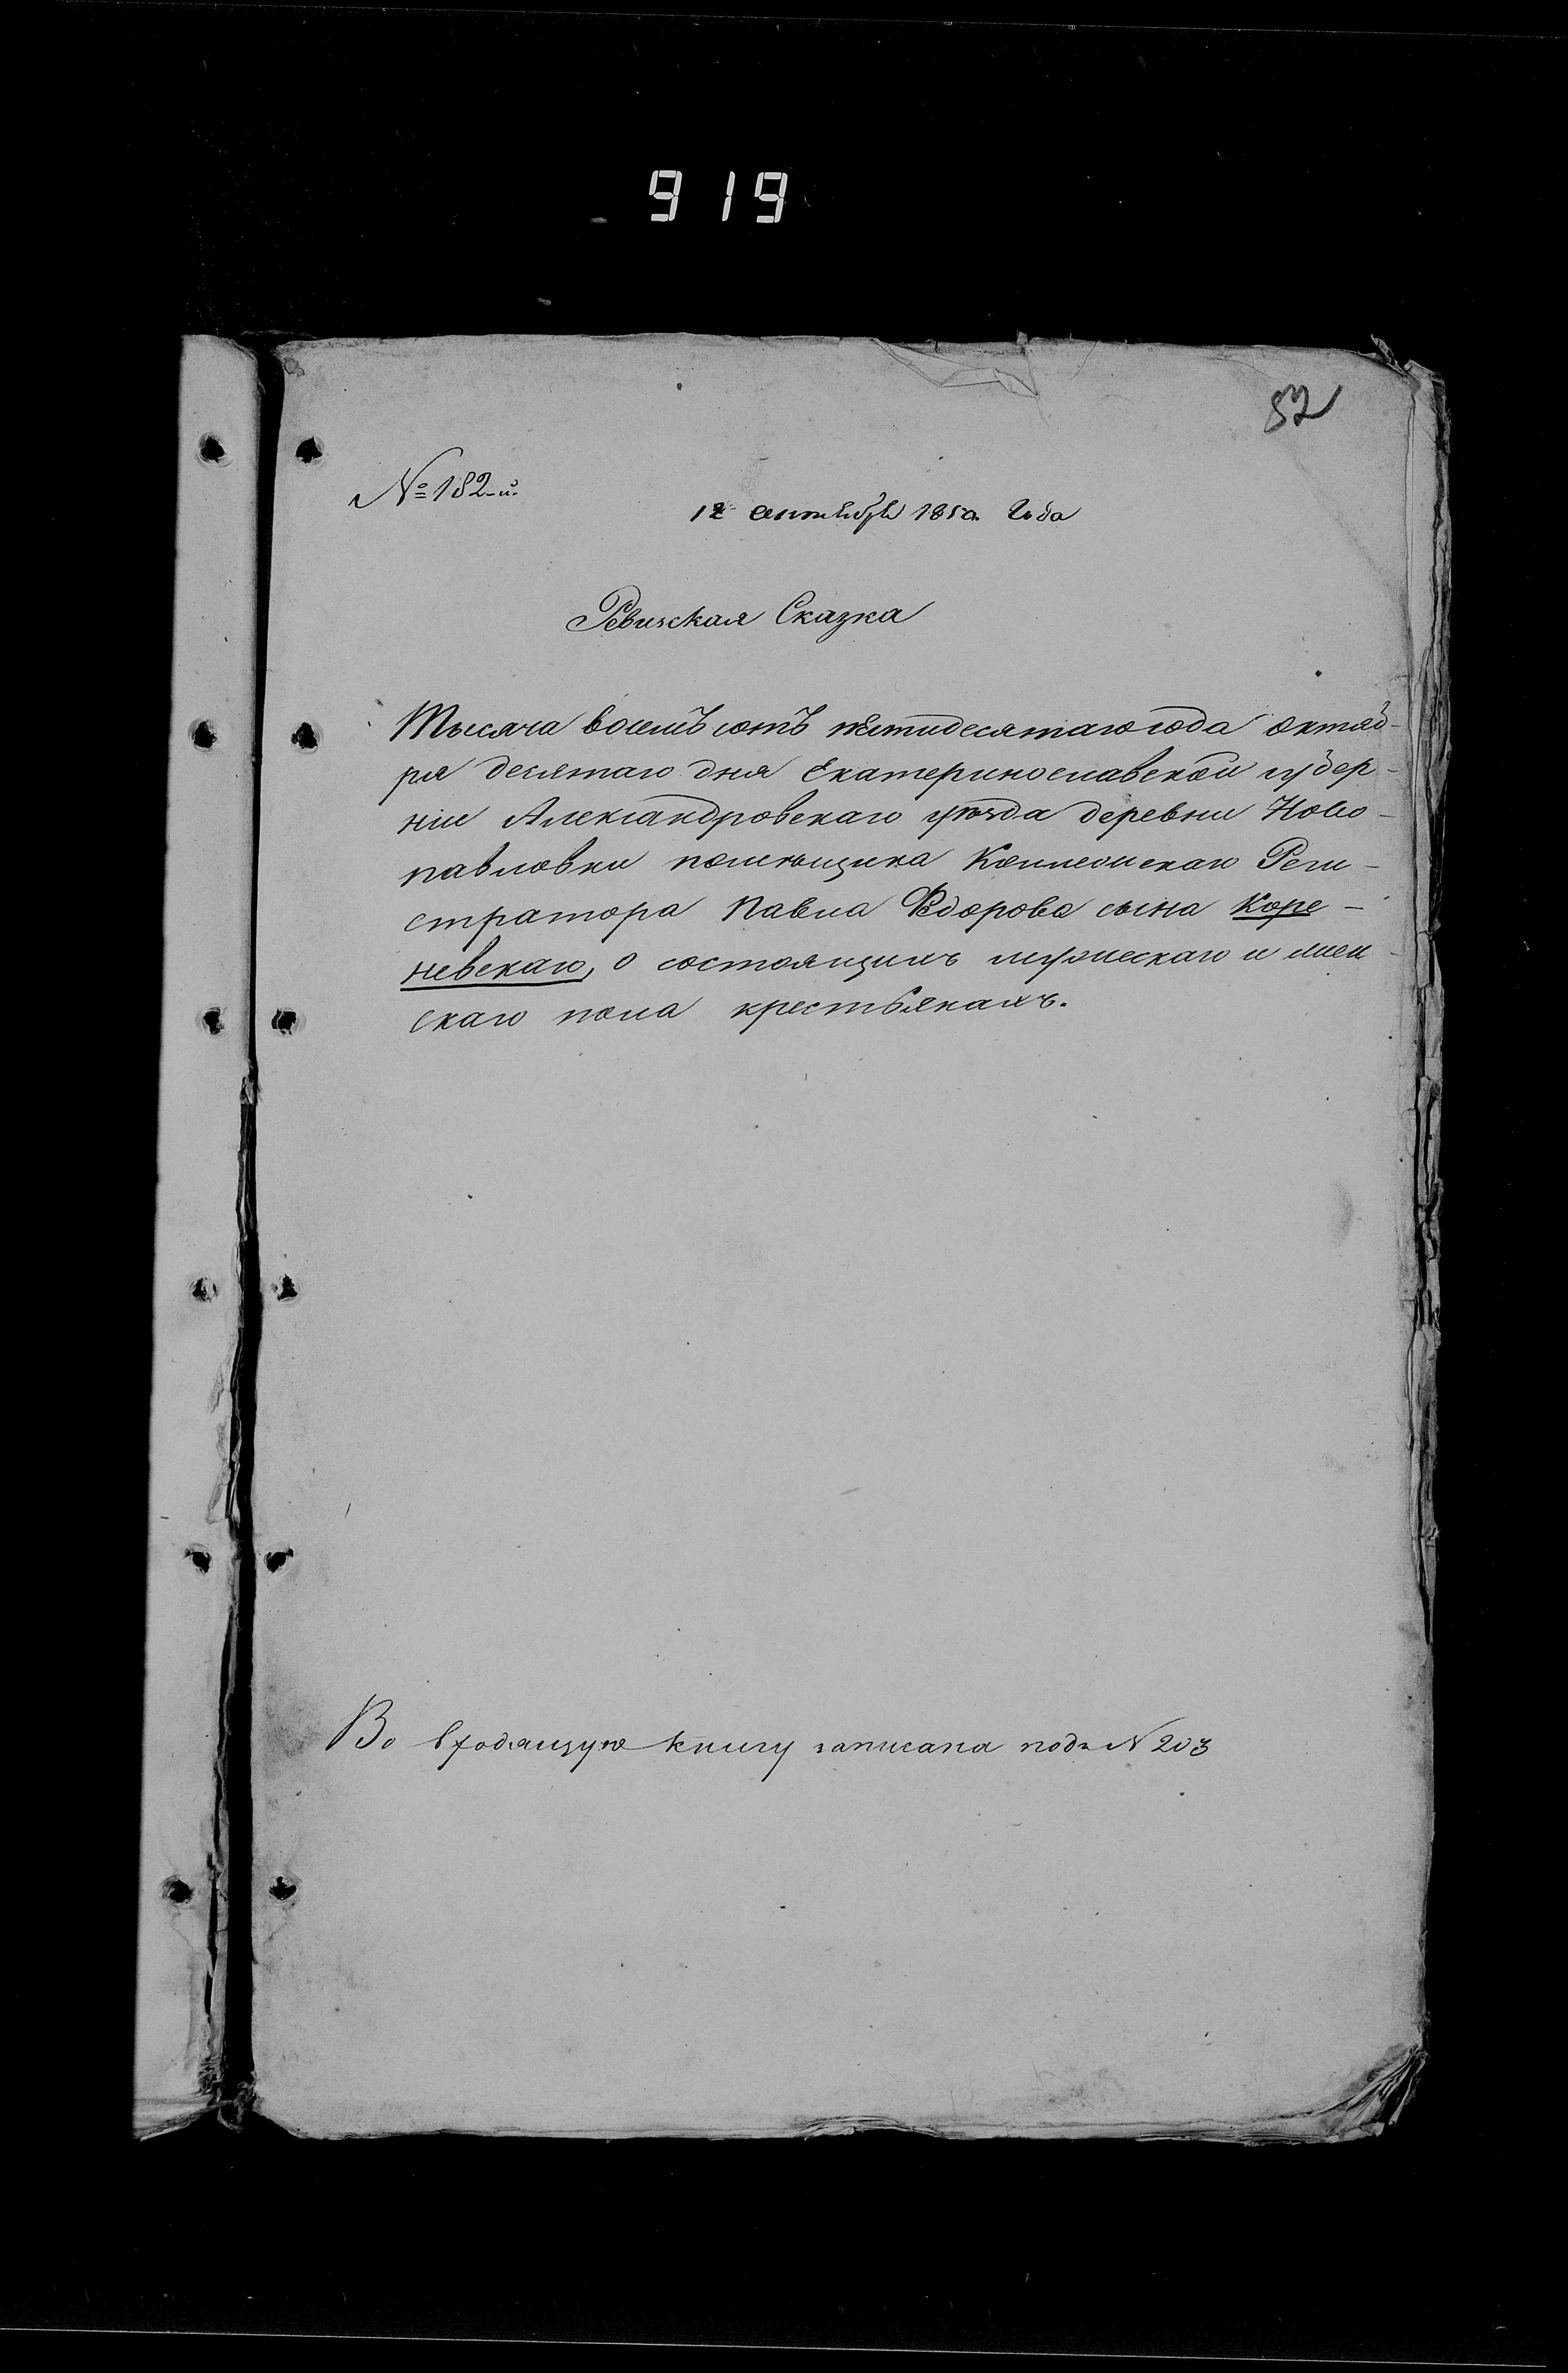 919
52
№ 182-й.
12 сентября 1850. Года
Ревизская Сказка
Тысяча восемъ сотъ пятидесятаго года октяб-
ря десятаго дня Екатеринославской губер-
ніи Александровскаго уѣзда деревни Ново-
павловки помѣщика Коллежскаго Реги-
стратора Павла Фёдорова сына Коре-
невскаго, о состоящихъ мужескаго и жен-
скаго пола крестьянахъ.
Во входящую книгу записана подъ N 203